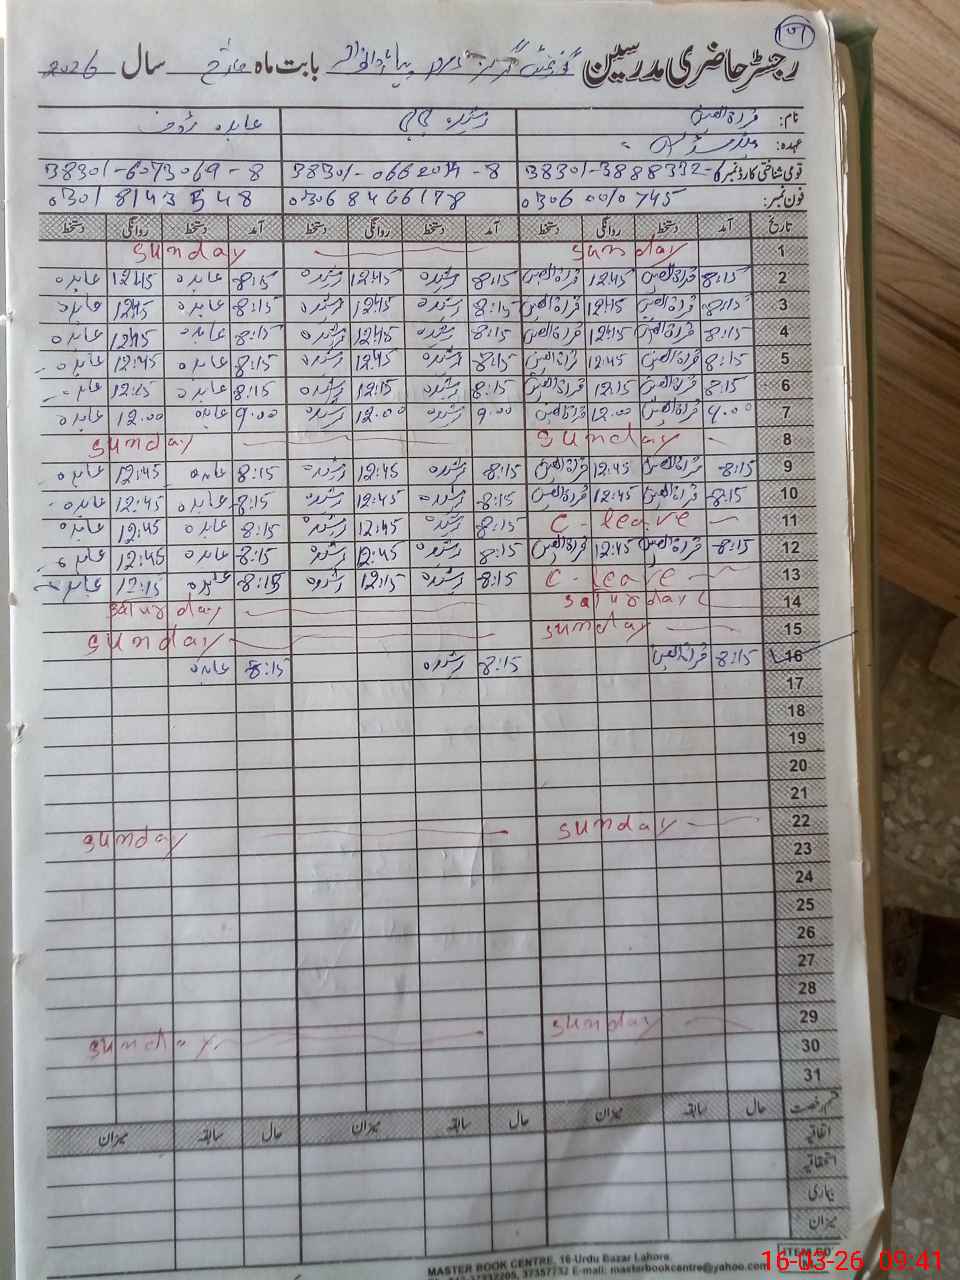 رجسٹر حاضری مدرسین گورنمنٹ گرلز بابت ماہ مارچ سال 2026
نام: قراۃ العین رشیدہ بی بی عابدہ رؤف
عہدہ:
قومی شناختی کارڈ نمبر 38301-3888332-6 38301-0662014-8 38301-6073069-8
فون نمبر: 0306 0010745 0306 8466178 0301 8143548
تاریخ آمد دستخط روانگی دستخط آمد دستخط روانگی دستخط آمد دستخط روانگی دستخط
1 Sunday Sunday
2 8:15 قراۃ العین 12:45 قراۃ العین 8:15 رشیدہ 12:45 رشیدہ 8:15 عابدہ 12:45 عابدہ
3 8:15 قراۃ العین 12:45 قراۃ العین 8:15 رشیدہ 12:45 رشیدہ 8:15 عابدہ 12:45 عابدہ
4 8:15 قراۃ العین 12:45 قراۃ العین 8:15 رشیدہ 12:45 رشیدہ 8:15 عابدہ 12:45 عابدہ
5 8:15 قراۃ العین 12:45 قراۃ العین 8:15 رشیدہ 12:45 رشیدہ 8:15 عابدہ 12:45 عابدہ
6 8:15 قراۃ العین 12:15 قراۃ العین 8:15 رشیدہ 12:15 رشیدہ 8:15 عابدہ 12:15 عابدہ
7 9:00 قراۃ العین 12:00 قراۃ العین 9:00 رشیدہ 12:00 رشیدہ 9:00 عابدہ 12:00 عابدہ
8 Sunday Sunday
9 8:15 قراۃ العین 12:45 قراۃ العین 8:15 رشیدہ 12:45 رشیدہ 8:15 عابدہ 12:45 عابدہ
10 8:15 قراۃ العین 12:45 قراۃ العین 8:15 رشیدہ 12:45 رشیدہ 8:15 عابدہ 12:45 عابدہ
11 C-leave 8:15 رشیدہ 12:45 رشیدہ 8:15 عابدہ 12:45 عابدہ
12 8:15 قراۃ العین 12:45 قراۃ العین 8:15 رشیدہ 12:45 رشیدہ 8:15 عابدہ 12:45 عابدہ
13 C-leave 8:15 رشیدہ 12:15 رشیدہ 8:15 عابدہ 12:15 عابدہ
14 Saturday Saturday
15 Sunday Sunday
16 8:15 قراۃ العین 8:15 رشیدہ 8:15 عابدہ
17
18
19
20
21
22 Sunday Sunday
23
24
25
26
27
28
29 Sunday Sunday
30
31
قسم رخصت حال سابقہ میزان حال سابقہ میزان حال سابقہ میزان
اتفاقیہ
استحقاقیہ
بیماری
میزان
MASTER BOOK CENTRE, 16-Urdu Bazar Lahore.
37357732 E-mail: masterbookcentre@yahoo.com
16-03-26 09:41